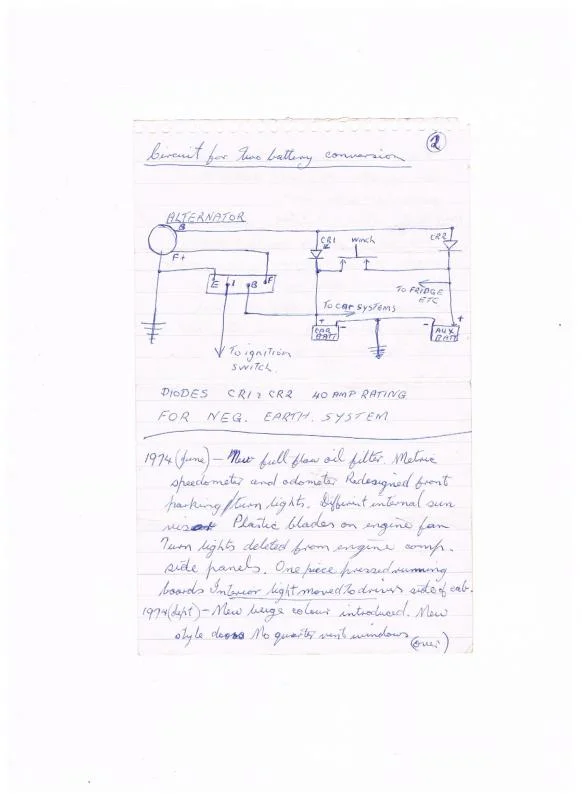 2
Circuit for two battery conversion
ALTERNATOR
B
F+
CR1
Winch
CR2
E I B F
TO FRIDGE
ETC
TO CAR SYSTEMS
+ - - +
CAR
BATT
AUX
BATT
To ignition
SWITCH.
DIODES CR1 & CR2 40 AMP RATING
FOR NEG. EARTH. SYSTEM
1974 (June) - New full flow oil filter. Metric
speedometer and odometer Redesigned front
parking/turn lights. Different internal sun
visor Plastic blades on engine fan
Turn lights deleted from engine comp.
side panels. One piece pressed running
boards Interior light moved to drivers side of cab.
1974 (Sept) - New beige colour introduced. New
style doors No quarter vent windows
(over)